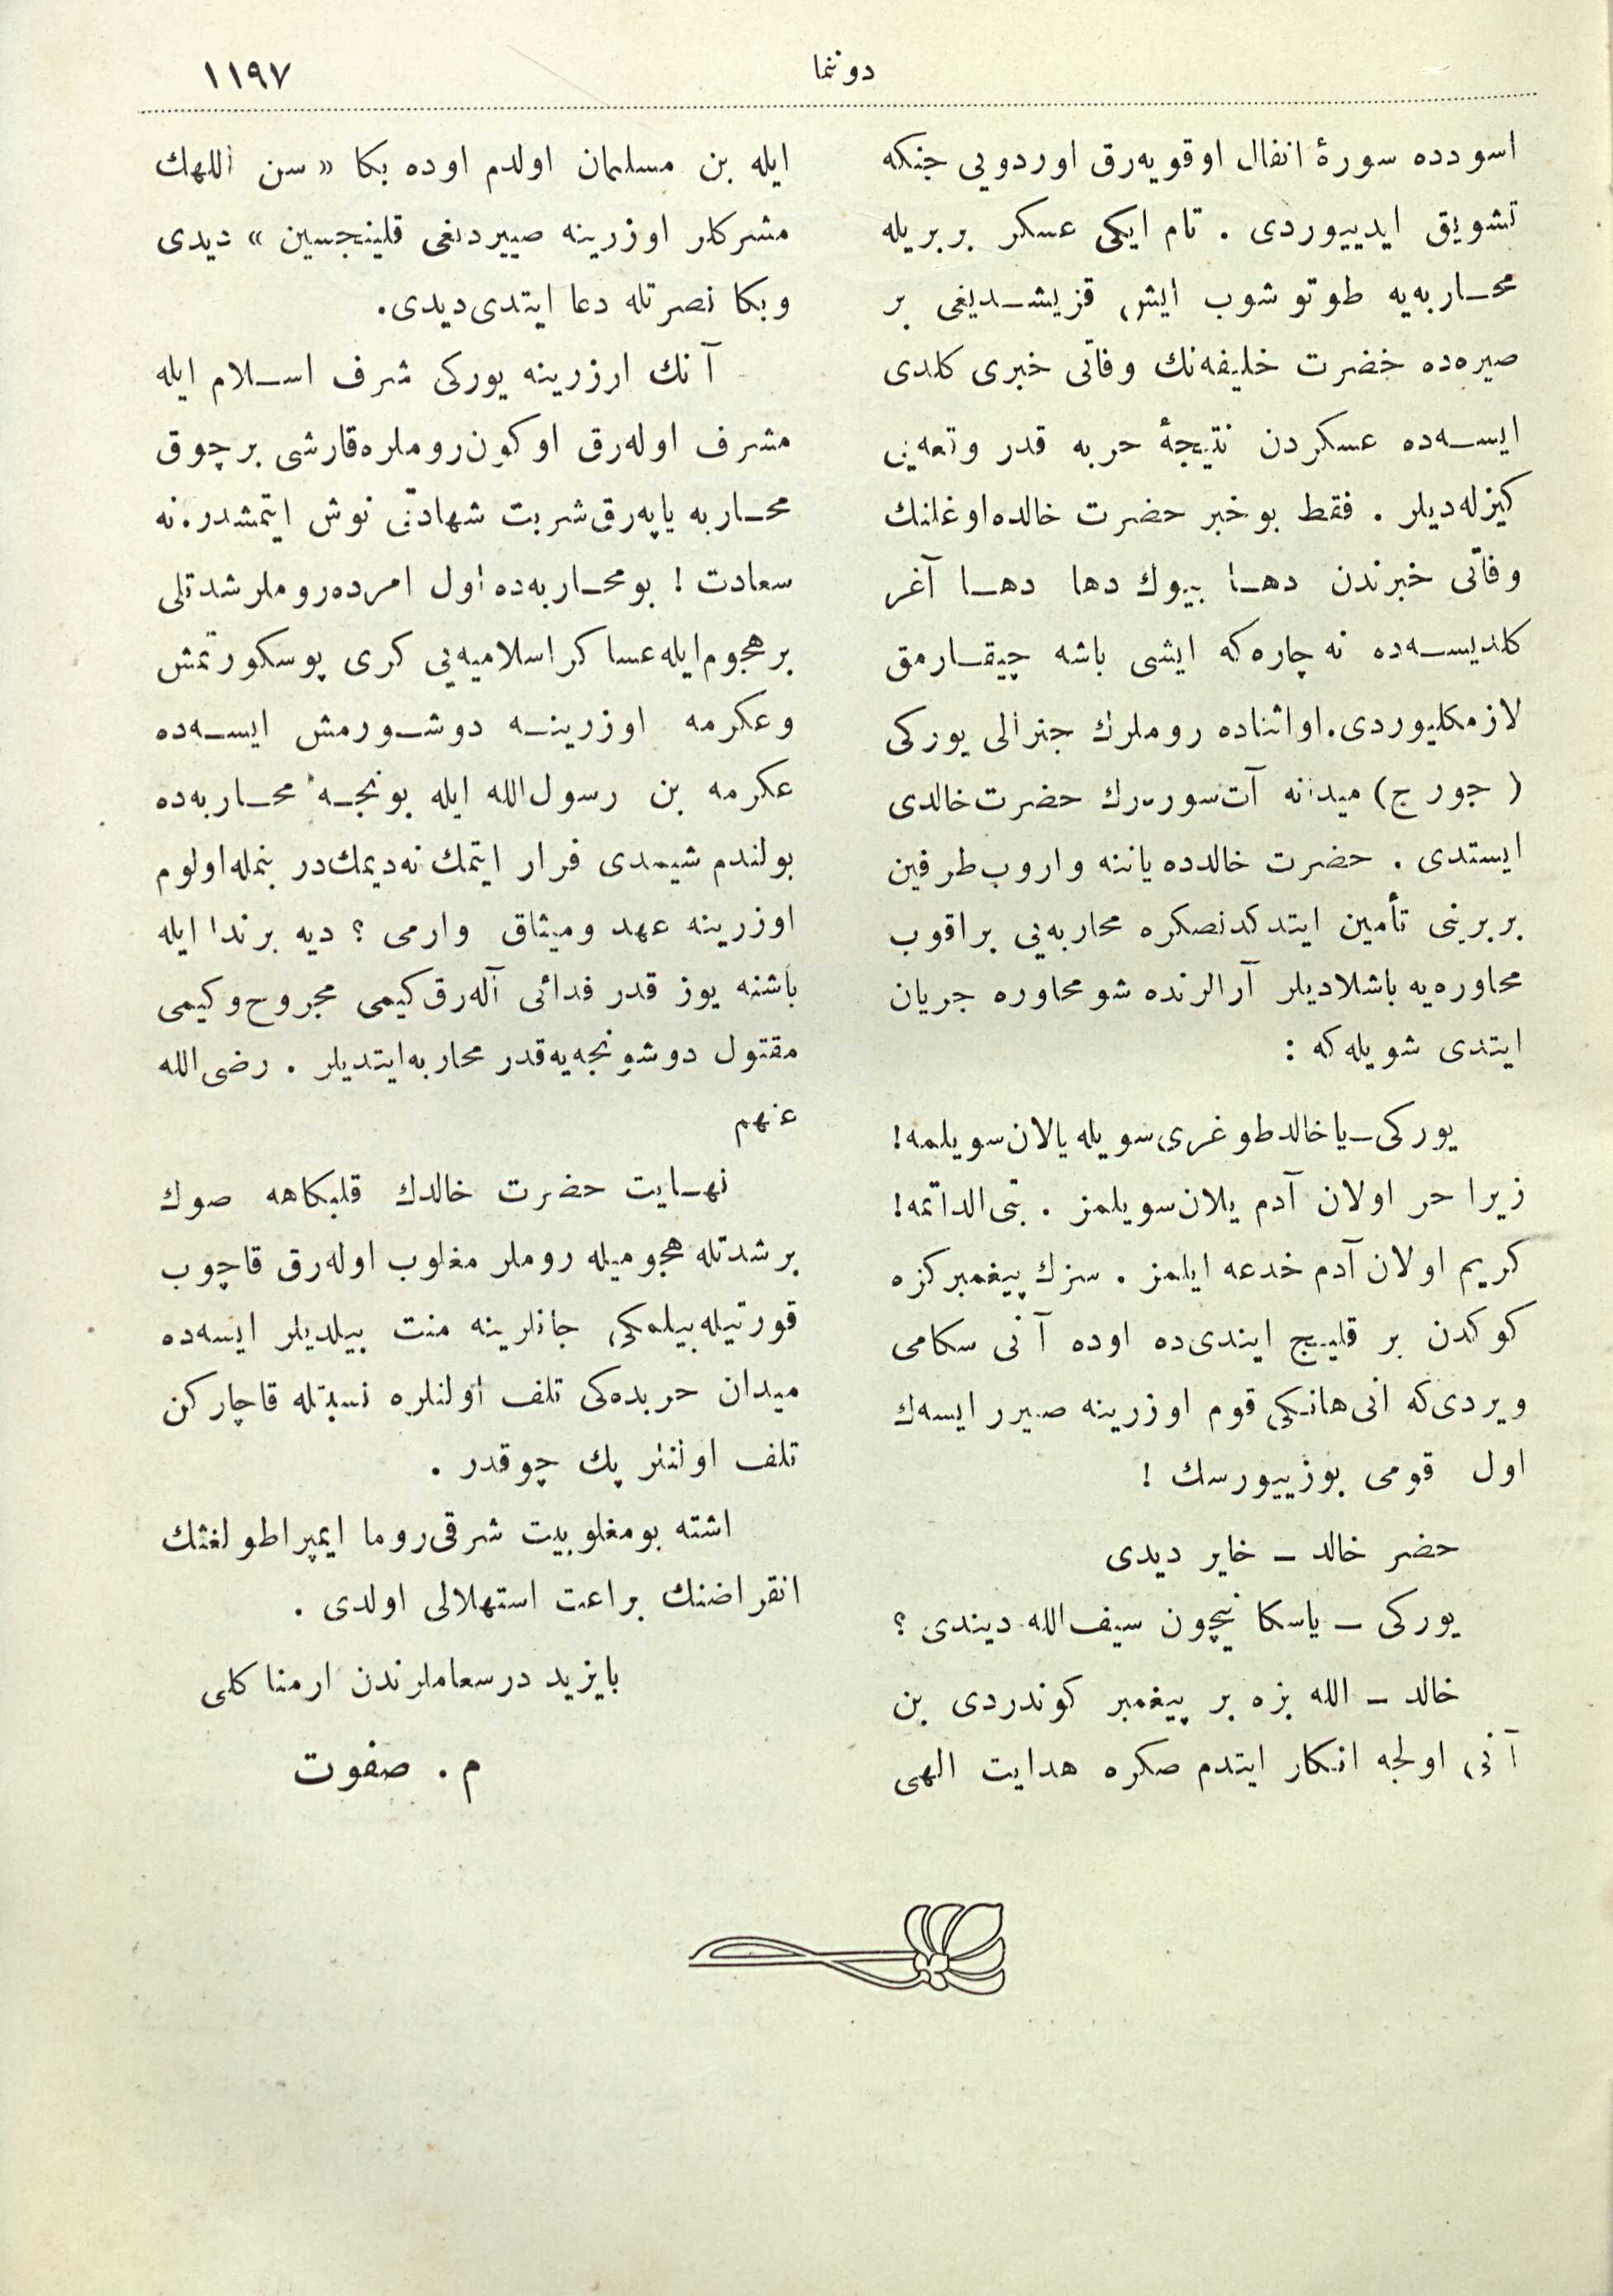 دوننما
١١٩٧
اسودده سورهٔ انفال اوقویه‌رق اوردویی جنکه
تشویق ایدییوردی . تام ایکی عسکر بربریله
محاربه‌یه طوتوشوب ایش قزیشدیغی بر
صیره‌ده خضرت خلیفه‌نك وفاتی خبری کلدی
ایسه‌ده عسکردن نتیجهٔ حربه قدر وقعه‌یی
کیزله‌دیلر . فقط بوخبر حضرت خالده اوغلنك
وفاتی خبرندن دها بیوك دها دها آغر
کلدیسه‌ده نه چاره‌که ایشی باشه چیقارمق
لازمکلیوردی. اواثناده روملرك جنرالی یورکی
( جورج) میدانه آت‌سوره‌رك حضرت خالدی
ایستدی . حضرت خالدده یاننه واروب طرفین
بربرینی تأمین ایتدکدنصکره محاربه‌یی براقوب
محاوره‌یه باشلادیلر آرالرنده شو محاوره جریان
ایتدی شویله‌که :
یورکی ــ یاخالد طوغری سویله یالان سویلمه!
زیرا حر اولان آدم یلان سویلمز . بنی الداتمه!
کریم اولان آدم خدعه ایلمز . سزك پیغمبرکزه
کوکدن بر قلیج ایندی‌ده اوده آنی سکامی
ویردی‌که انی هانکی قوم اوزرینه صیرر ایسه‌ك
اول قومی بوزییورسك !
حضر خالد ــ خایر دیدی
یورکی ــ یاسکا نیچون سیف‌الله دیندی ؟
خالد ــ الله بزه بر پیغمبر کوندردی بن
آنی اولجه انکار ایتدم صکره هدایت الهی
ایله بن مسلمان اولدم اوده بکا « سن اللهك
مشرکلر اوزرینه صییردیغی قلینجسین » دیدی
وبکا نصرتله دعا ایتدی دیدی.
آنك ارزرینه یورکی شرف اسلام ایله
مشرف اوله‌رق اوکون روملره قارشی برچوق
محاربه یاپه‌رق شربت شهادتی نوش ایتمشدر. نه
سعادت ! بومحاربه‌ده اول امرده روملر شدتلی
برهجوم ایله عساکر اسلامیه‌یی کری پوسکورتمش
وعکرمه اوزرینه دوشورمش ایسه‌ده
عکرمه بن رسول‌الله ایله بونجه محاربه‌ده
بولندم شیمدی فرار ایتمك نه‌دیمك‌در بنمله اولوم
اوزرینه عهد ومیثاق وارمی ؟ دیه برندا ایله
باشنه یوز قدر فدائی آله‌رق کیمی مجروح وکیمی
مقتول دوشونجه‌یه‌قدر محاربه ایتدیلر . رضی‌الله
عنهم
نهایت حضرت خالدك قلبکاهه صوك
برشدتله هجومیله روملر مغلوب اوله‌رق قاچوب
قورتیله‌بیلمکی جانلرینه منت بیلدیلر ایسه‌ده
میدان حربده‌کی تلف اولنلره نسبتله قاچارکن
تلف اولنلر پك چوقدر .
اشته بومغلوبیت شرقی روما ایمپراطولغنك
انقراضنك براعت استهلالی اولدی .
بایزید درسعاملرندن ارمناکلی
م . صفوت